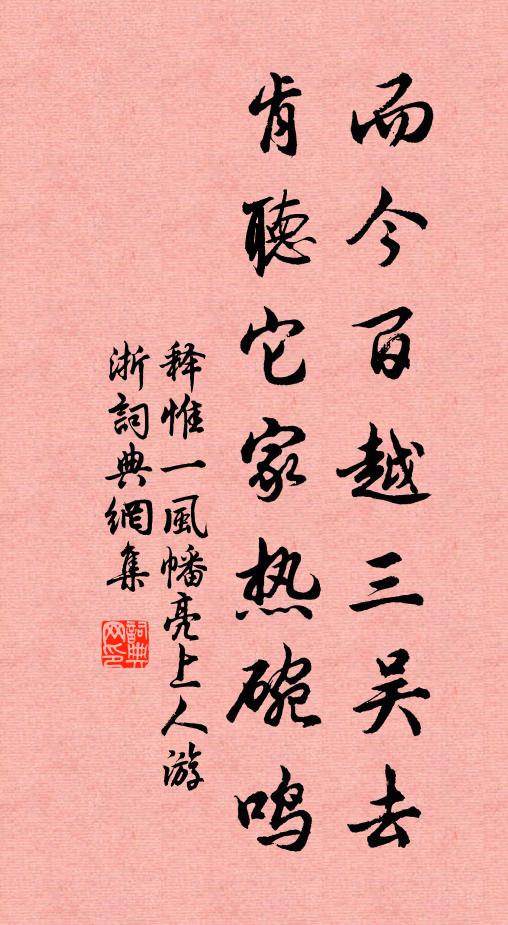 而今百越三吴去
肯聽它家热碗鸣
释惟一風幡亮上人游
浙詞典網集
詞典网印